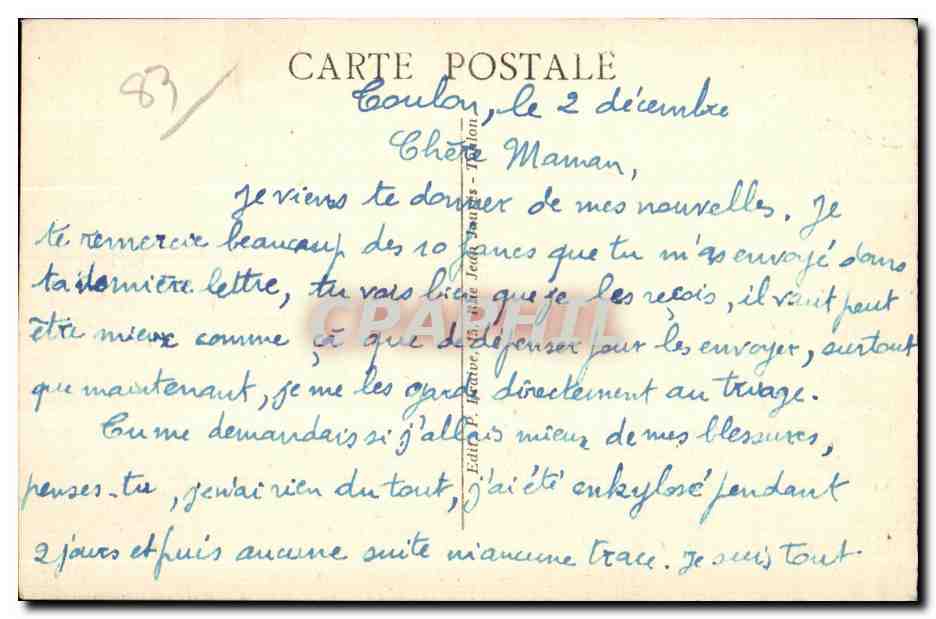 83
CARTE POSTALE
Toulon, le 2 décembre
Chère Maman,
je viens te donner de mes nouvelles. Je
te remercie beaucoup des 10 francs que tu m'as envoyé dans
ta dernière lettre, tu vois bien que je les reçois, il vaut peut
être mieux comme çà que de dépenser pour les envoyer, surtout
que maintenant, je me les garde directement au triage.
Tu me demandais si j'allais mieux de mes blessures,
penses-tu, je n'ai rien du tout, j'ai été ankylosé pendant
2 jours et puis aucune suite ni aucune trace. Je suis tout
Edit. P. 15, Rue Jean Jaurès - Toulon
CPAPHIL